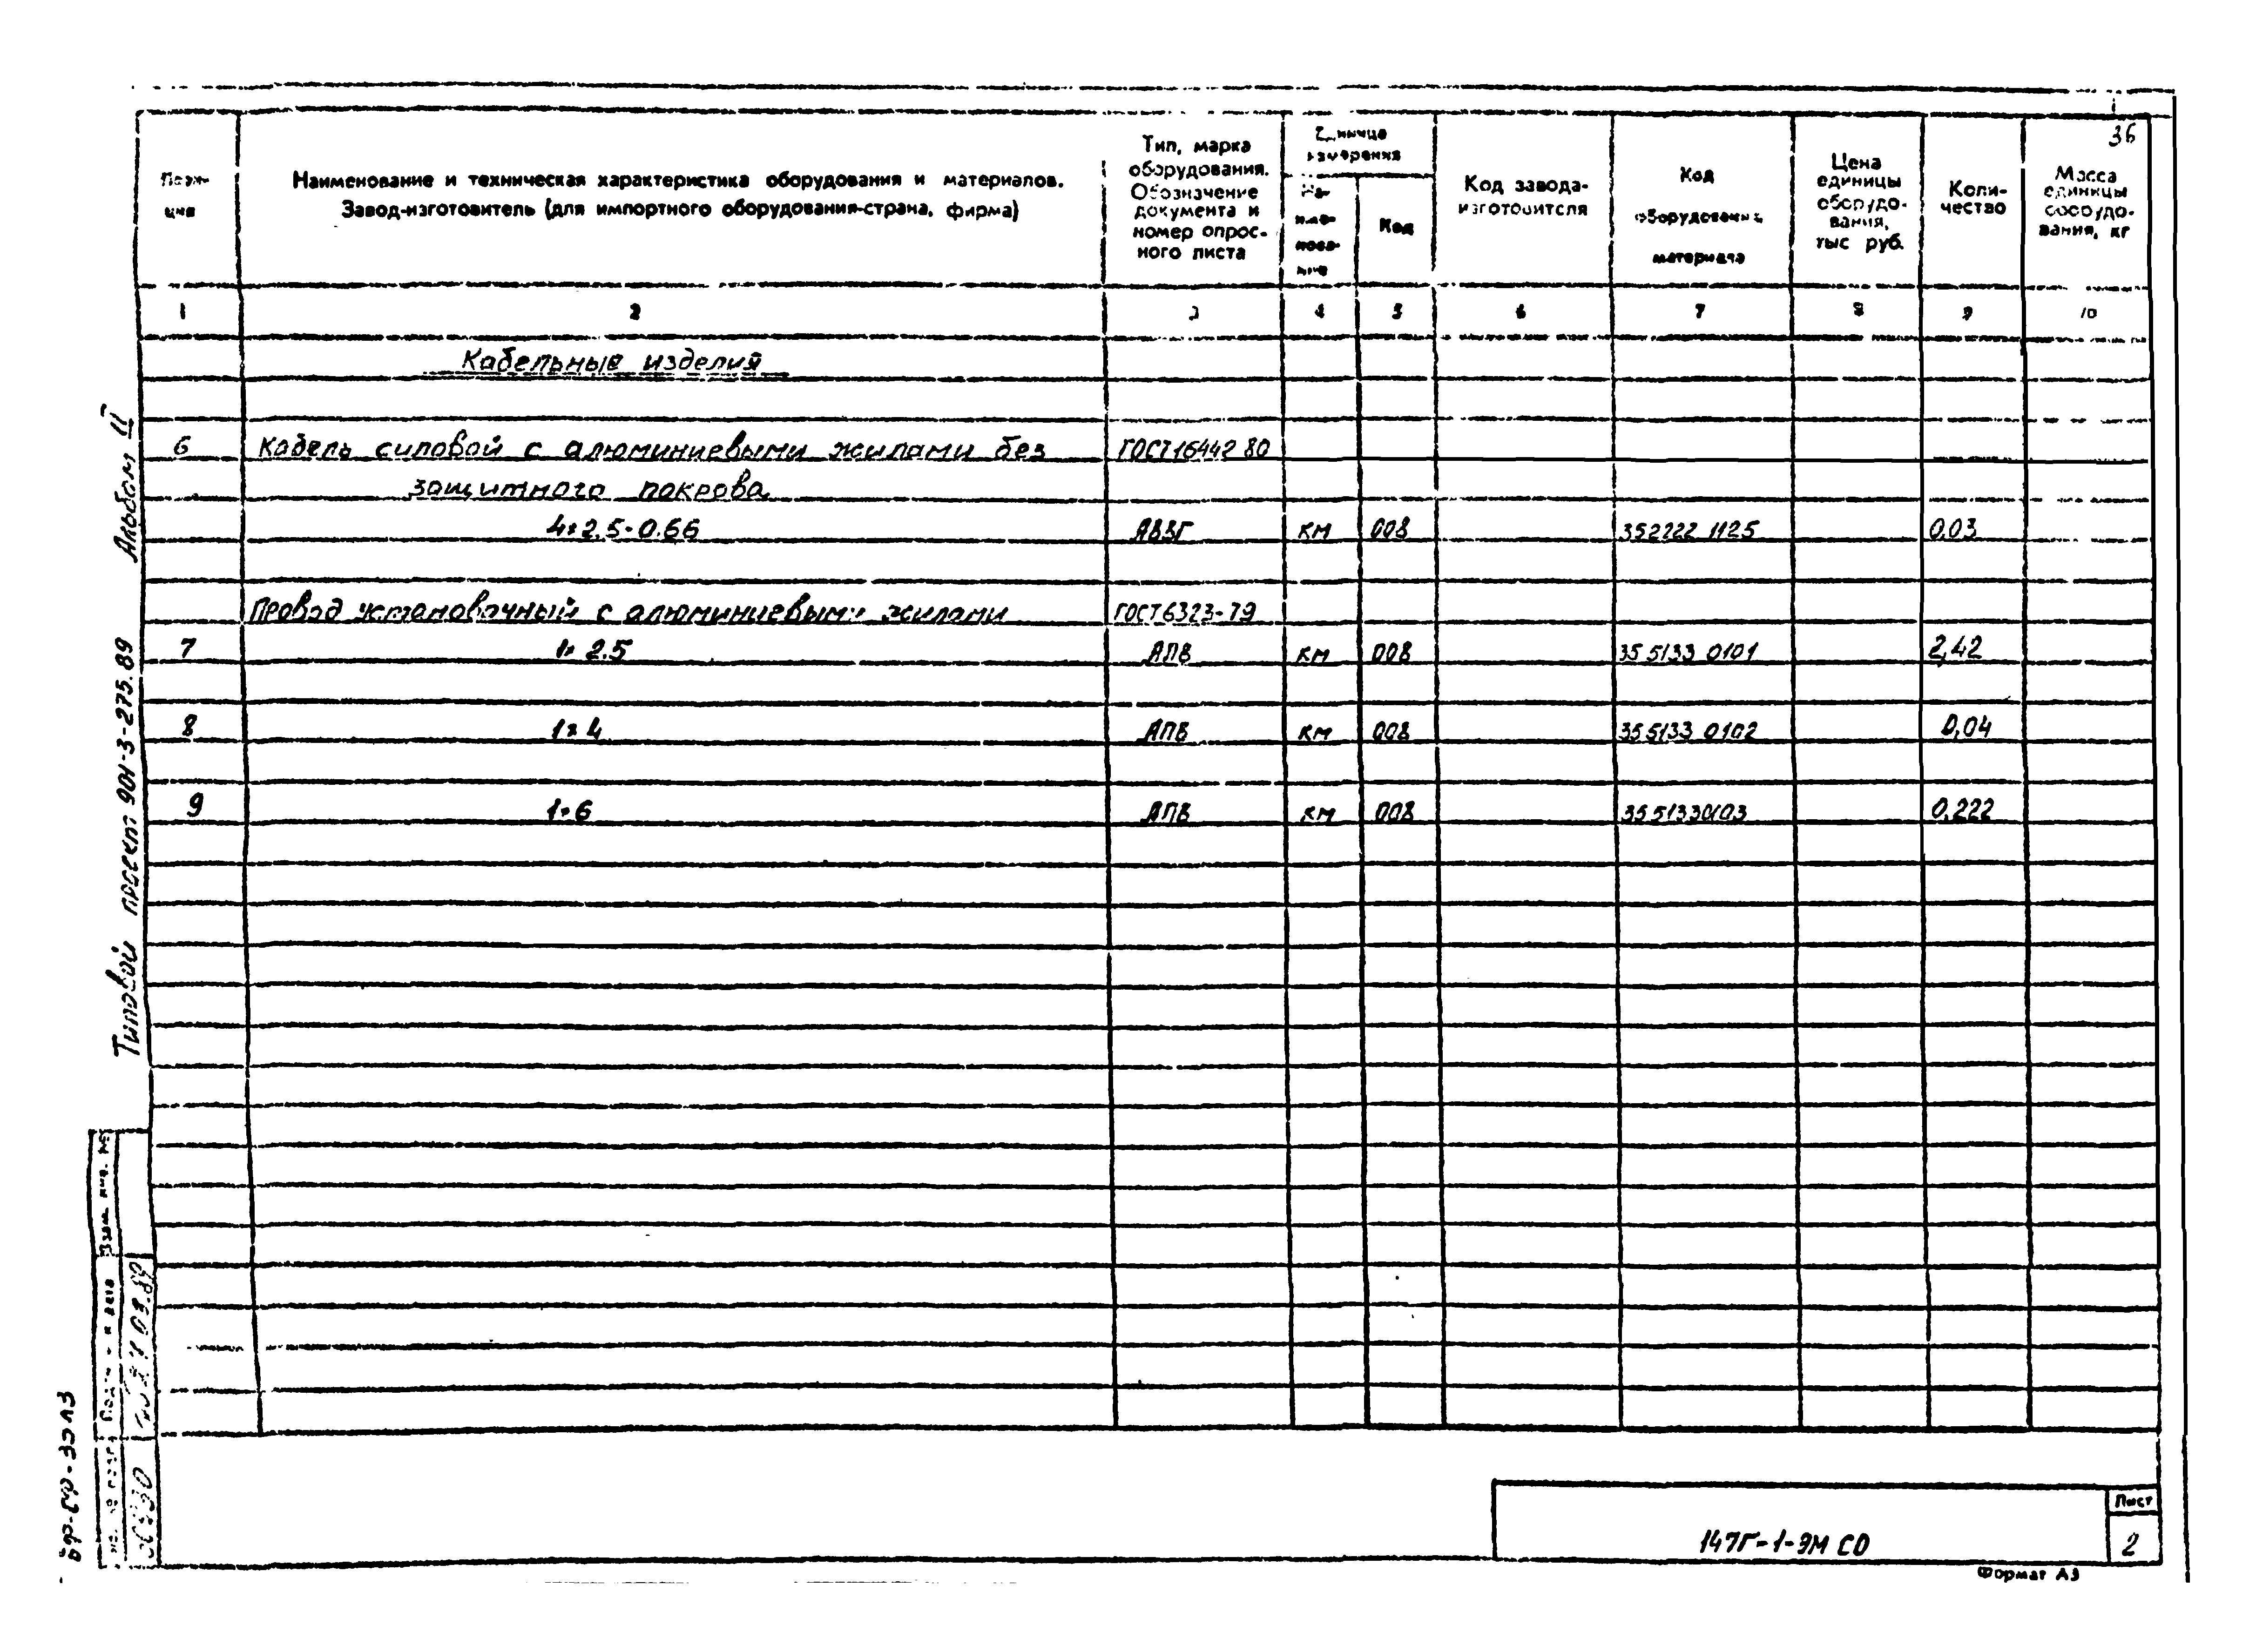 36
Пози-
ция
Наименование и техническая характеристика оборудования и материалов.
Завод-изготовитель (для импортного оборудования-страна, фирма)
Тип, марка
оборудования.
Обозначение
документа и
номер опрос-
ного листа
Единица
измерения
На-
име-
нова-
ние
Код
Код завода-
изготовителя
Код
оборудования,
материала
Цена
единицы
оборудо-
вания,
тыс руб.
Коли-
чество
Масса
единицы
оборудо-
вания, кг
1 2 3 4 5 6 7 8 9 10
Кабельные изделия
6 Кабель силовой с алюминиевыми жилами без ГОСТ 16442 80
защитного покрова
4×2.5-0.66 АВВГ км 008 352222 1125 0,03
Провод установочный с алюминиевыми жилами ГОСТ 6323-79
7 1×2.5 АПВ км 008 355133 0101 2,42
8 1×4 АПВ км 008 355133 0102 0,04
9 1×6 АПВ км 008 3551330103 0,222
Альбом II
Типовой проект 901-3-275.89
Взам. инв. №
147Г-1-ЭМ СО
Лист
2
Формат А3